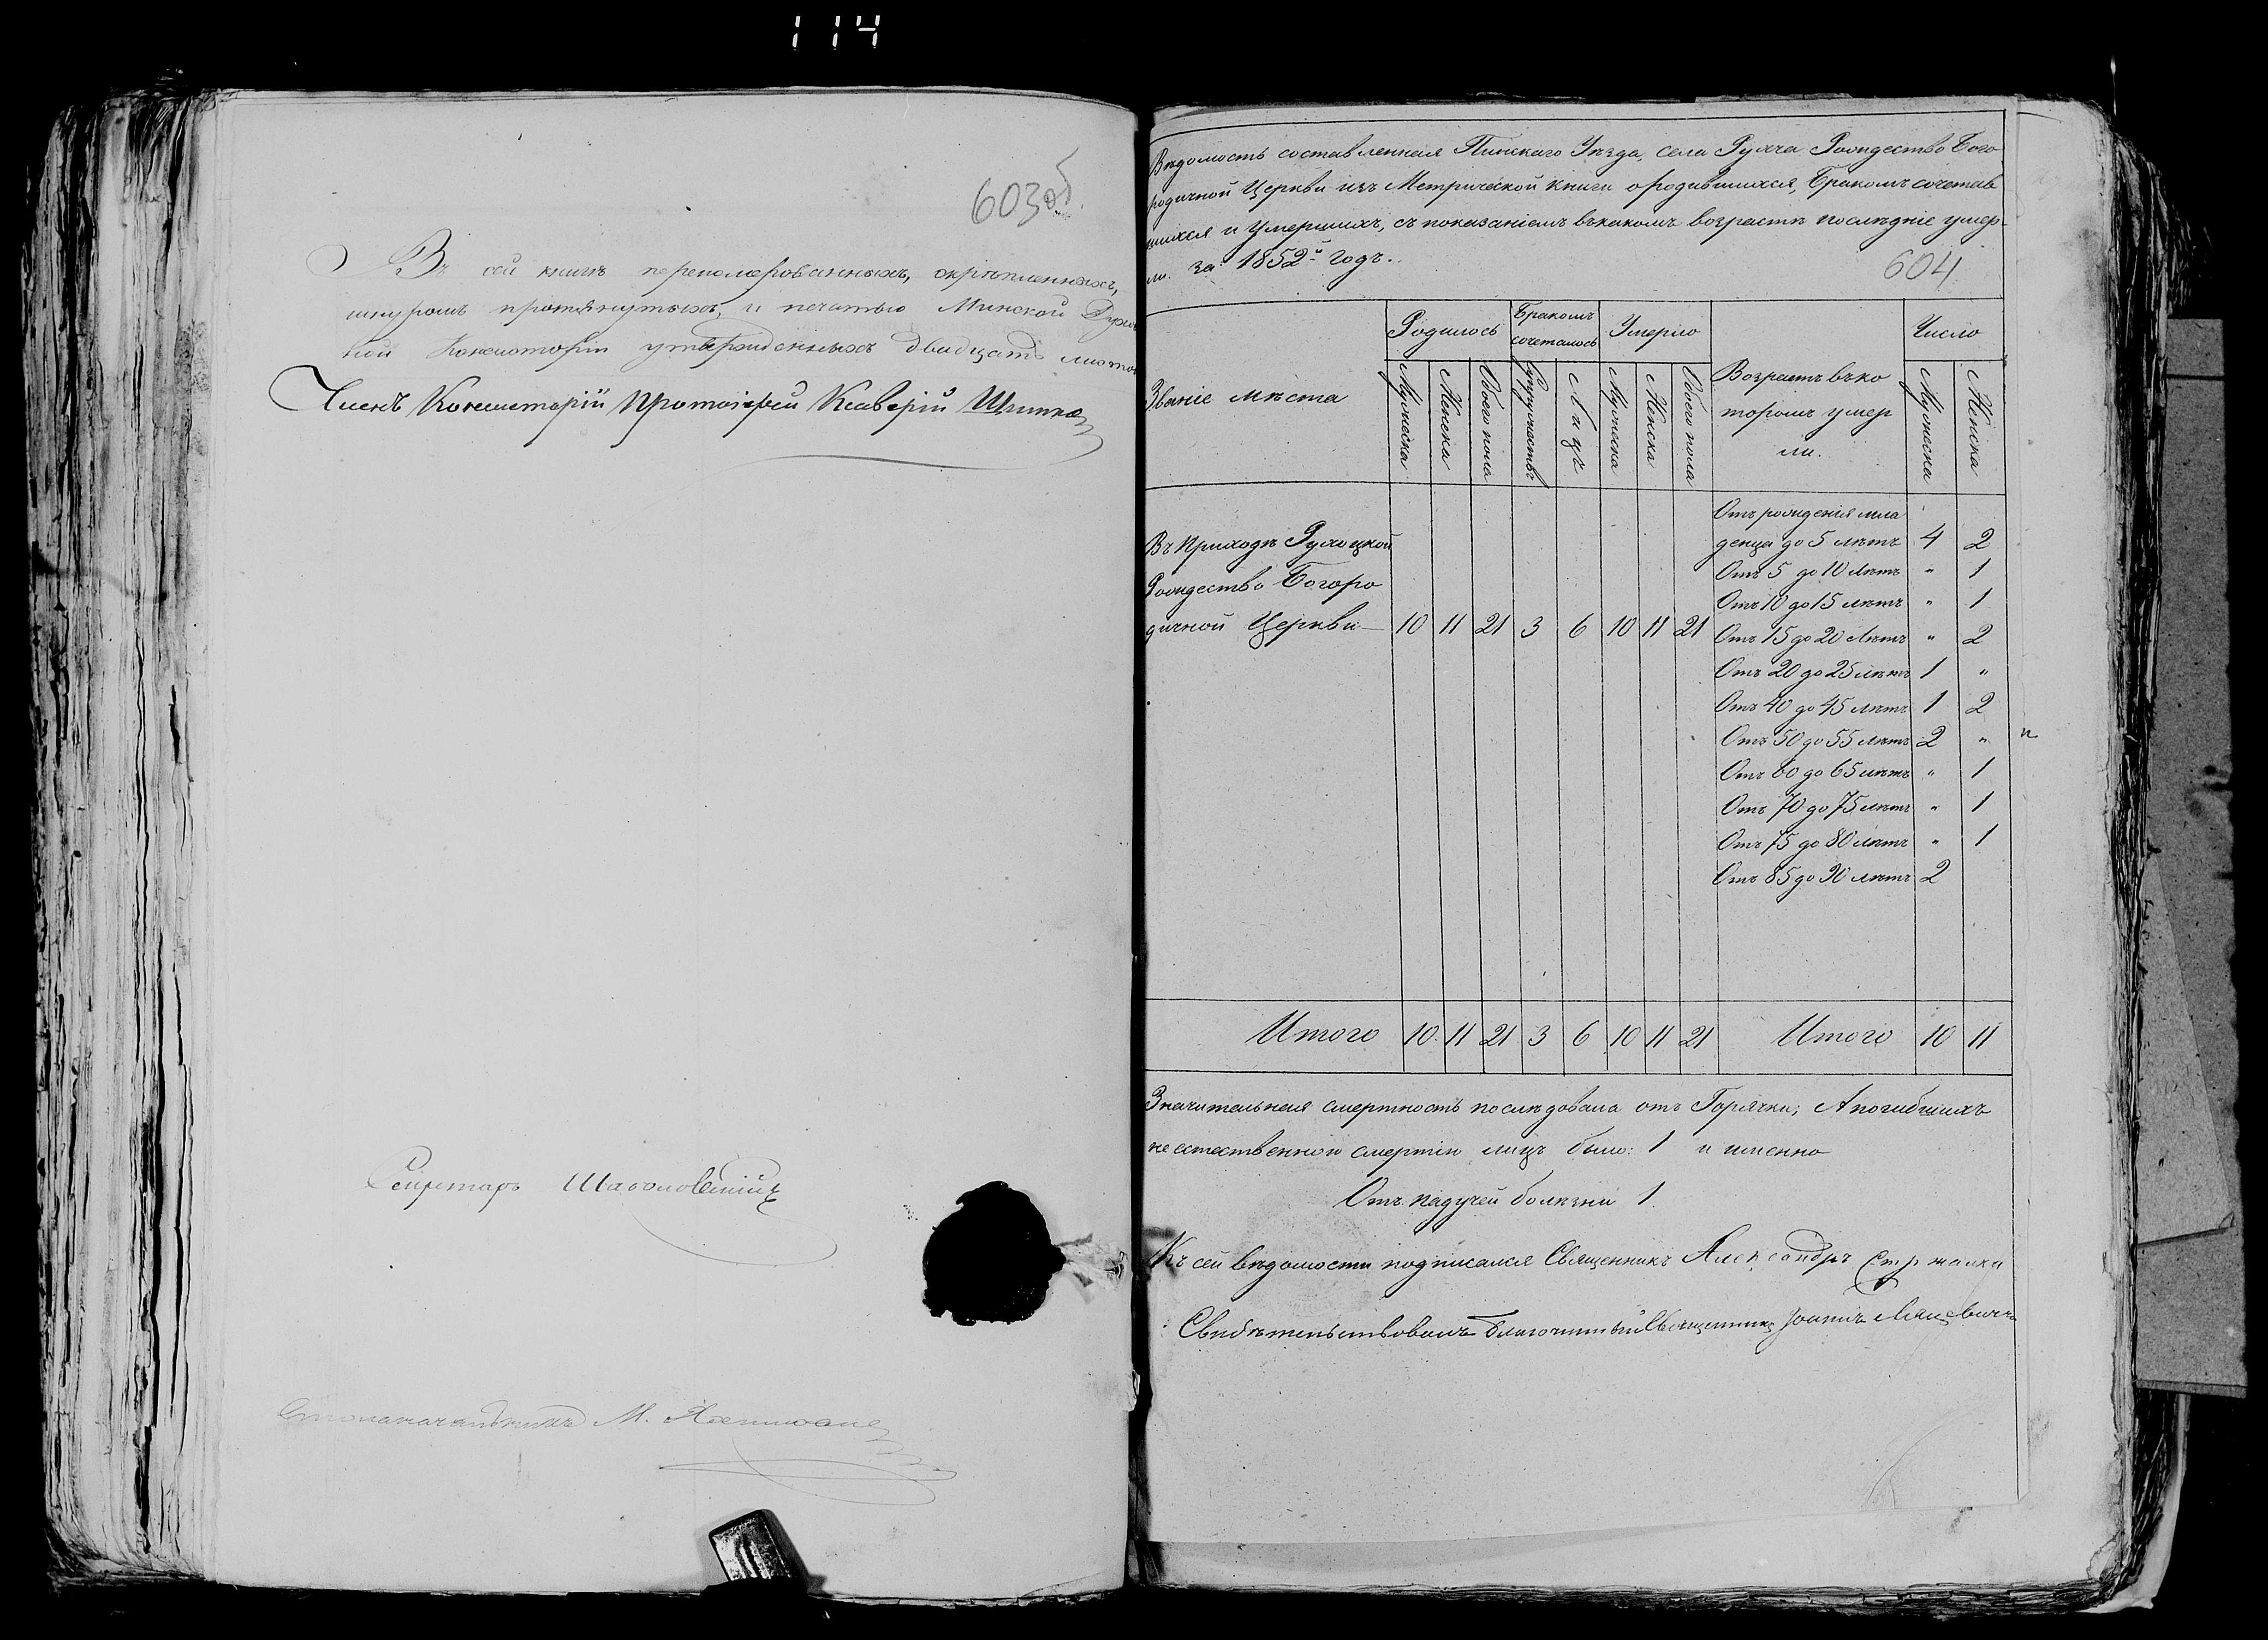 114
603 об.
Въ сей книгѣ перенумерованныхъ, скрѣпленныхъ,
шнуромъ протянутыхъ, и печатью Минской Духов
ной Консисторіи утвержденныхъ двадцать листов
Членъ Консисторіи Протоіерей Ксаверій
Секретарь
Столоначальникъ М.
Вѣдомость составленная Пинскаго Уѣзда, села Рухча Рождество Бого
родичной Церкви изъ Метрической книги о родившихся, Бракомъ сочетав
шихся и Умершихъ, съ показаніемъ въ какомъ возрастѣ послѣдніе умер-
ли. за 1852й годъ.
604
Званіе мѣста
Родилось
Бракомъ сочеталось
Умерло
Возрастъ въ ко
торомъ умер
ли.
Число
Мужеска
Женска
Обоего пола
Супружествъ
Лицъ
Мужеска
Женска
Обоего пола
Мужеска
Женска
Въ Приходѣ Рухоцкой
Рождество Богоро
дичной Церкви — 10 11 21 3 6 10 11 21
Отъ рожденія мла
денца до 5 лѣтъ 4 2
Отъ 5 до 10 лѣтъ " 1
Отъ 10 до 15 лѣтъ " 1
Отъ 15 до 20 лѣтъ " 2
Отъ 20 до 25 лѣтъ 1 "
Отъ 40 до 45 лѣтъ 1 2
Отъ 50 до 55 лѣтъ 2 "
Отъ 60 до 65 лѣтъ " 1
Отъ 70 до 75 лѣтъ " 1
Отъ 75 до 80 лѣтъ " 1
Отъ 85 до 90 лѣтъ 2
Итого 10 11 21 3 6 10 11 21 Итого 10 11
Значительная смертность послѣдовала отъ Горячки; А погибшихъ
не естественною смертію лицъ было: 1 и именно
Отъ падучей болѣзни 1.
Къ сей вѣдомости подписался Священникъ Александръ
Свидѣтельствовалъ Благочинный Священникъ Іоаннъ